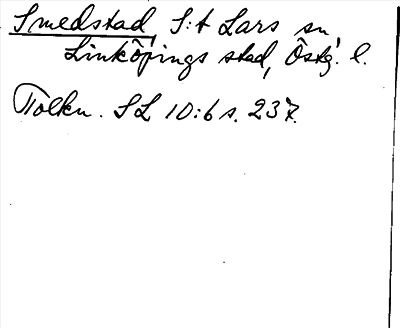 Smedstad, S:t Lars sn,
Linköpings stad, Östg. l.
Tolkn. SL 10:6 s. 237.